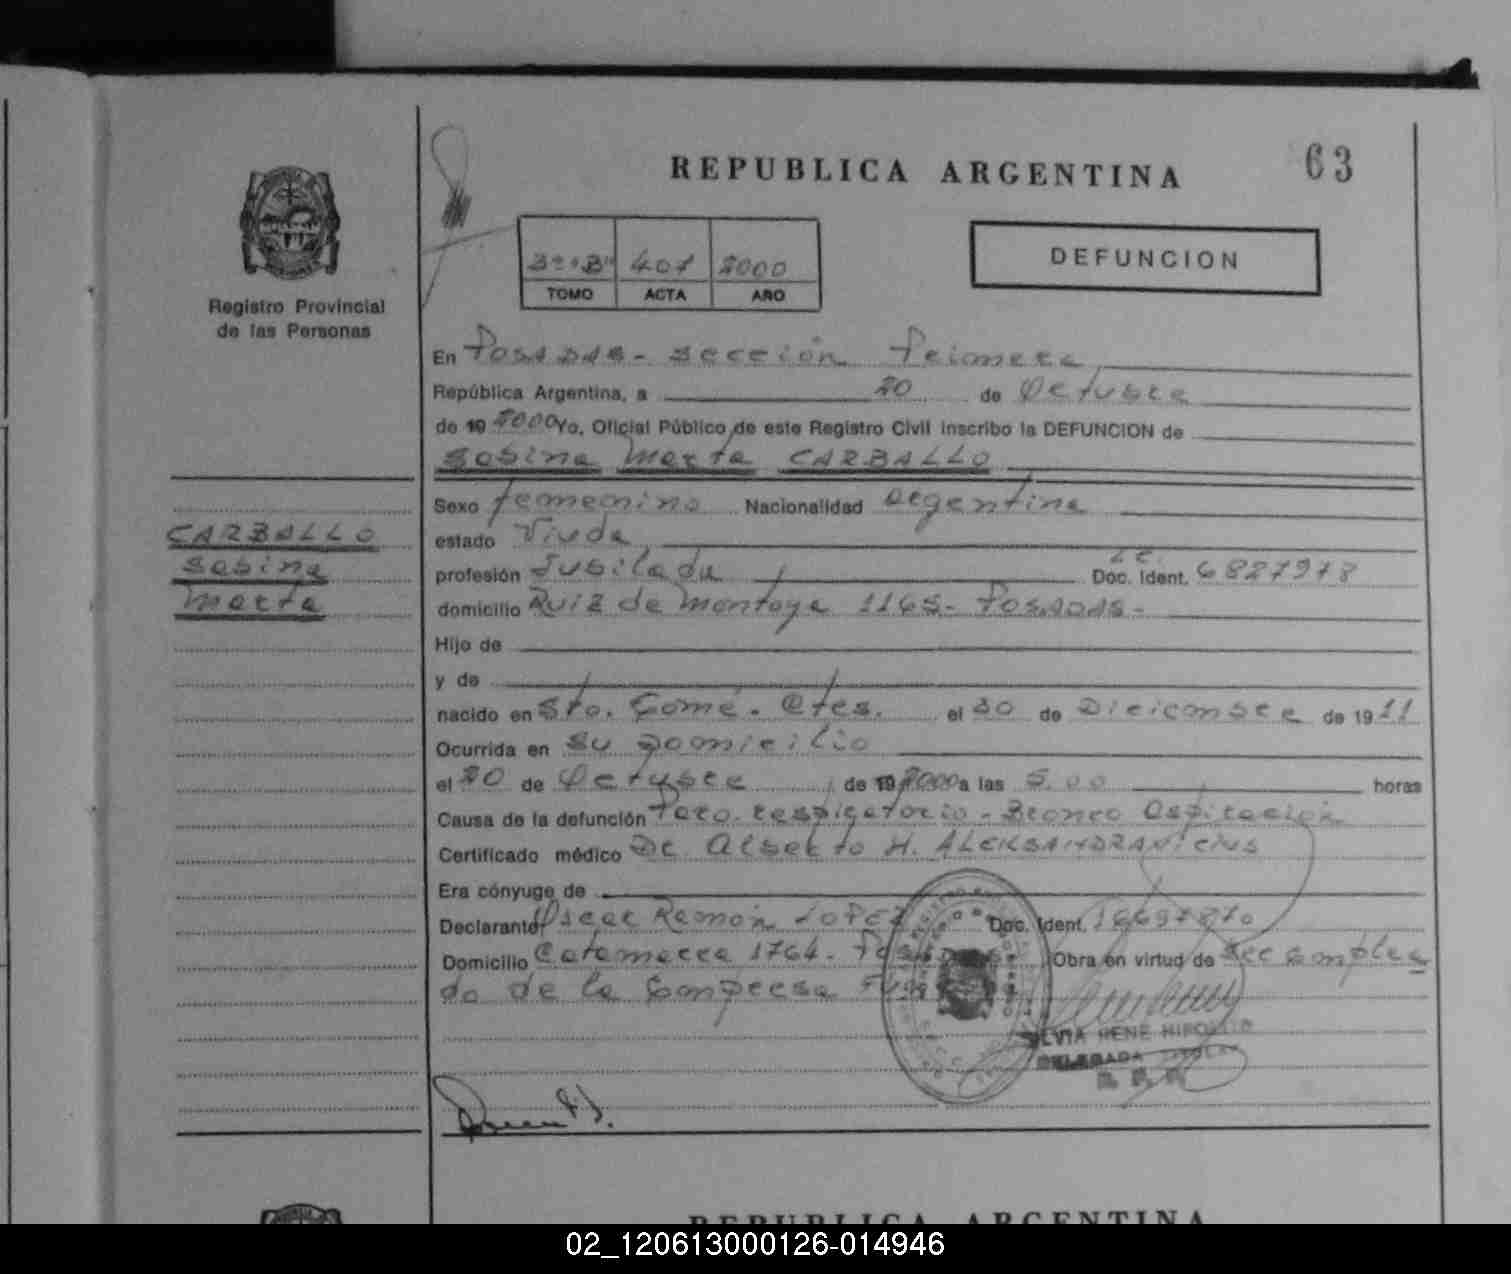 REPUBLICA ARGENTINA
63
DEFUNCION
3º "B" 407 2000
TOMO ACTA AÑO
Registro Provincial
de las Personas
En Posadas - sección Primera
República Argentina, a 20 de Octubre
de 19 2000 Yo, Oficial Público de este Registro Civil inscribo la DEFUNCION de
Sabina Marta CARBALLO
CARBALLO
Sabina
Marta
Sexo femenino Nacionalidad argentina
estado Viuda
profesión Jubilada Doc. Ident. L.C. 6827978
domicilio Ruiz de Montoya 1165 - Posadas -
Hijo de
y de
nacido en Sto. Tomé - Ctes. el 30 de Diciembre de 1911
Ocurrida en su Domicilio
el 20 de Octubre de 19 2000 a las 5,00 horas
Causa de la defunción Paro respiratorio - Bronco Aspiración
Certificado médico Dr. Alberto H. ALEKSANDRAVICIUS
Era cónyuge de
Declarante Oscar Ramón LOPEZ Doc. Ident. 16697870
Domicilio Catamarca 1764 - Posadas Obra en virtud de ser emplea
do de la Empresa
SILVIA RENE HIPOLITO
DELEGADA TITULAR
REPUBLICA ARGENTINA
02_120613000126-014946